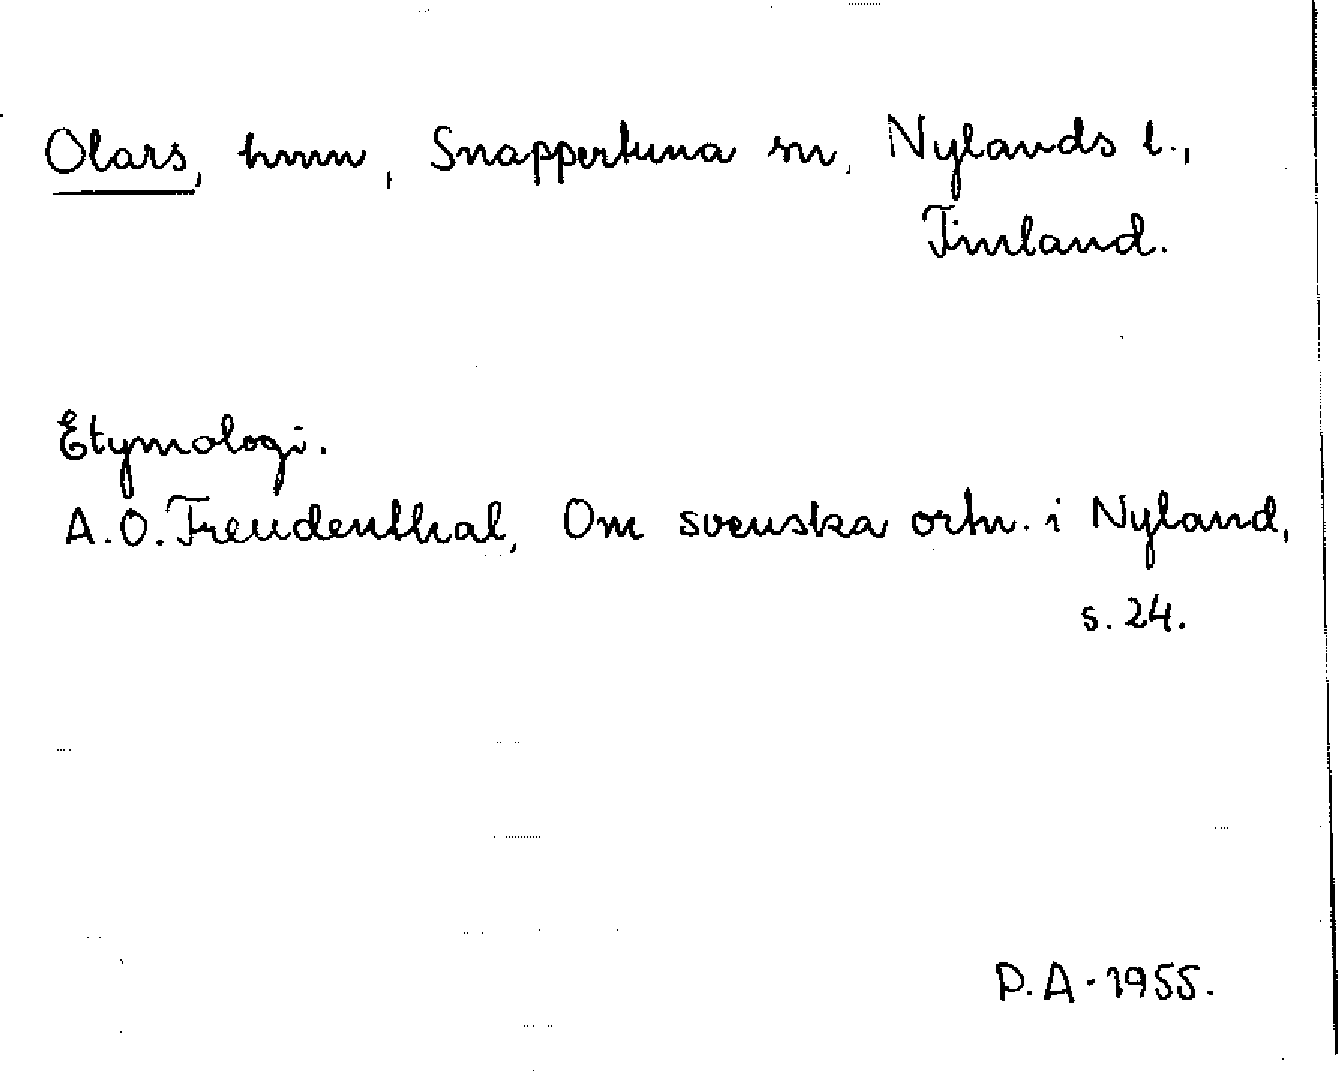 Olars, hmn, Snappertuna sn, Nylands l.,
Finland.
Etymologi.
A.O. Freudenthal, Om svenska ortn. i Nyland,
s. 24.
P.A. 1955.